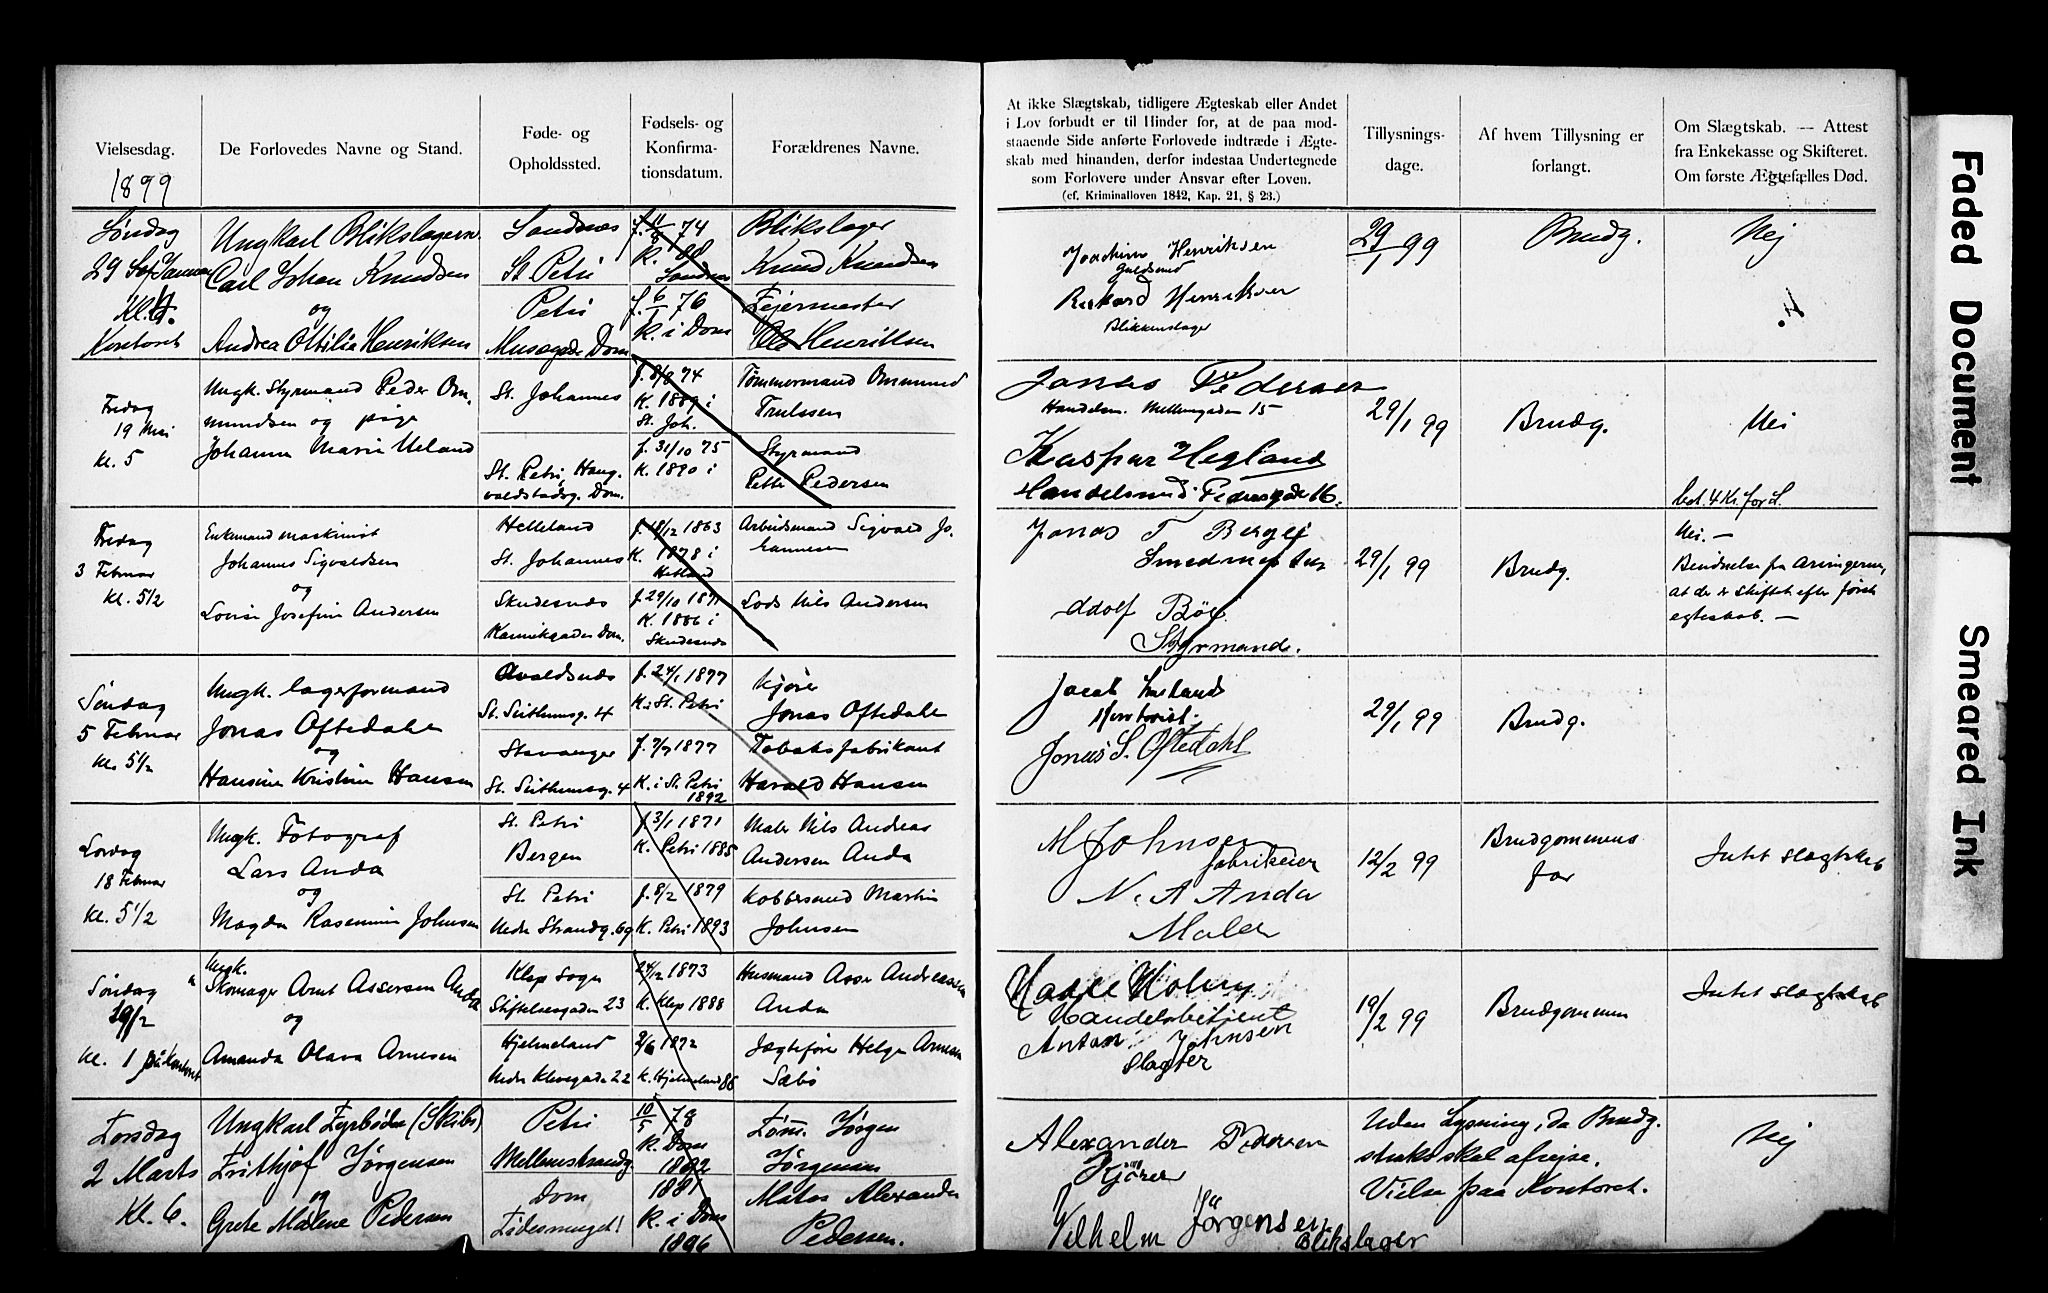 Vielsesdag.
1899
De Forlovedes Navne og Stand.
Føde- og
Opholdssted.
Fødsels- og
Konfirma-
tionsdatum.
Forældrenes Navne.
At ikke Slægtskab, tidligere Ægteskab eller Andet
i Lov forbudt er til Hinder for, at de paa mod-
staaende Side anførte Forlovede indtræde i Ægte-
skab med hinanden, derfor indestaa Undertegnede
som Forlovere under Ansvar efter Loven.
(cf. Kriminalloven 1842, Kap. 21, § 23.)
Tillysnings-
dage.
Af hvem Tillysning er
forlangt.
Om Slægtskab. — Attest
fra Enkekasse og Skifteret.
Om første Ægtefælles Død.
Søndag
29 Januar
Kl.
Kontoret
Ungkarl Blikslagersv.
Carl Johan Knudsen
og
Andrea Ottilia Henriksen
Sandnes
St Petri
Petri
Musegade Dom
f. 11/8 74
k. 88
Sandnes
f. 6/1 76
k. i Dom
Blikslager
Knud Knudsen
Fejermester
Ole Henriksen
Joachim Henriksen
Guldsmed
Rikard Henriksen
Blikkenslager
29/1 99
Brudg.
Nej
Fredag
19 Mai
Kl. 5
Ungk. Styrmand Peder Om-
mundsen og pige
Johanna Marie Ueland
St. Johannes
St. Petri, Haug-
valdstadsg. Dom.
f. 8/8 74
K. 1889 i
St. Joh.
f. 31/10 75
K. 1890 i
Tømmermand Ommund
Trulssen
Styrmand
Petter Pedersen
Jonas Pedersen
Handelsm. Møllegaden 15
Kaspar Hegland
Handelsmd. Pedersgade 16.
29/1 99
Brudg.
Nei
bet. 4 Kr. for L.
Fredag
3 Februar
Kl. 5 1/2
Enkemand maskinist
Johannes Sigvaldsen
og
Lovise Josefine Andersen
Helleland
St. Johannes
Skudesnæs
Kannikgaden Dom.
f. 18/12 1863
K. 1878 i
Hetland
f. 29/10 1871
K. 1886 i
Skudesnæs
Arbeidsmand Sigvald Jo-
hannesen
Lods Nils Andersen
Jonas T Berge
Smedmester
Adolf Bøe
Styrmand.
29/1 99
Brudg.
Nei. —
Bevidnelse fra Arvingerne,
at der er skiftet efter første
egteskab. —
Søndag
5 Februar
Kl. 5 1/2
Ungk. lagerformand
Jonas Oftedal
og
Hansine Kristine Hansen
Avaldsnæs
St. Svithunsg. 4
Stavanger
St. Svithunsg. 4
f. 24/1 1877
K. i St. Petri
f. 7/7 1877
K. i St. Petri
1892
Kjører
Jonas Oftedal
Tobaksfabrikant
Harald Hansen
Jacob
Kontorist.
Jonas S. Oftedahl
29/1 99
Brudg.
Lørdag
18 Februar
Kl. 5 1/2
Ungk. Fotograf
Lars Anda
og
Magda Rasmine Johnsen
St. Petri
Bergen
St. Petri
Nedre Strandg. 69
f. 3/1 1871
K. Petri 1885
f. 8/2 1879
K. Petri 1893
Maler Nils Andreas
Andersen Anda
Kobbersmed Martin
Johnsen
M Johnsen
fabrikeier
N. A Anda
Maler
12/2 99
Brudgommens
far
Intet slægtskab
Søndag
19/2
Kl. 1 på kontoret
Ungk.
Skomager Arnt Assersen Anda
og
Amanda Olava Arnesen
Klep sogn
Stiftelsesgaden 23
Hjelmeland
Nedre Klevegade 22
24/12 1873
K. Klep 1888
2/6 1872
K. Hjelmeland 86
Husmand Asser Andreassen
Anda
Jægtefører Helge Arnesen
Sæbø
Handelsbetjent
Anton Johnsen
Slagter
19/2 99
Brudgommen
Intet slægtskab
Torsdag
2 Marts
Kl. 6.
Ungkarl Fyrbøder (Skibs)
Frithjof Jørgensen
og
Grete Malene Pedersen
Petri
Mellemstrandg.
Dom
10/5 78
K. Dom
1892
1881
K. i Dom
1896
Tøm. Jørgen
Jørgensen
Matros Alexander
Pedersen.
Alexander Pedersen
Kjører
Vilhelm Jörgensen
Blikslager
Uden Lysning, da Brudg.
straks skal afrejse.
Vielse paa Kontoret.
Nej
Faded Document
Smeared Ink